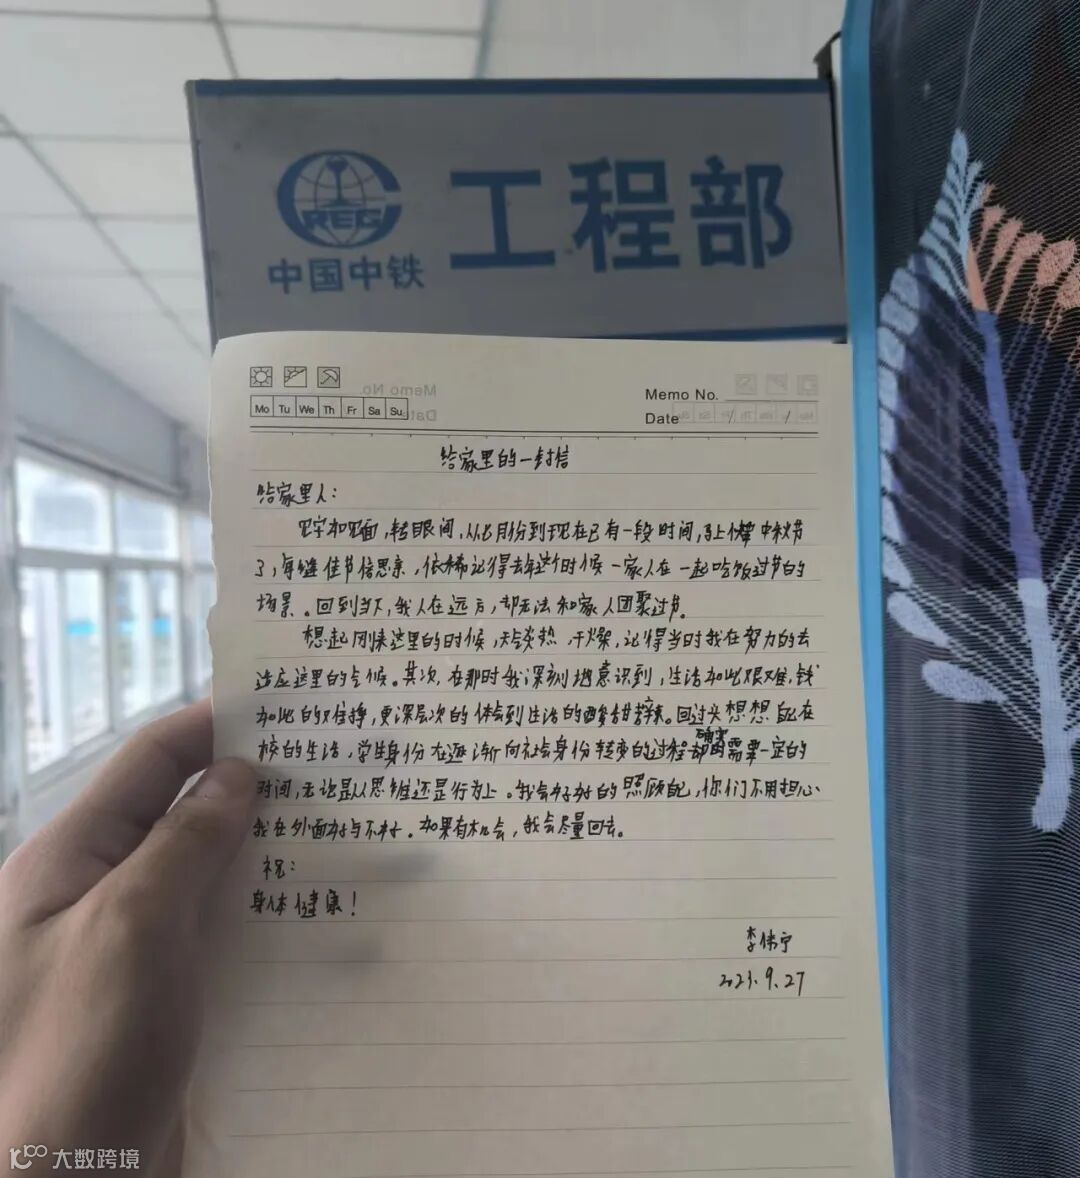 CREG
中国中铁
工程部
Memo No.
Date
Mo Tu We Th Fr Sa Su
给家里的一封信
给家里人:
见字如见面,转眼间,从七月份到现在已有一段时间,马上要中秋节
了,每逢佳节倍思亲,依稀记得去年这个时候一家人在一起吃饭过节的
场景。回到当下,我人在远方,却无法和家人团聚过节。
想起刚来这里的时候,天气炎热,干燥,记得当时我在努力的去
适应这里的气候。其次,在那时我深刻地意识到,生活如此艰难,钱
如此的难挣,更深层次的体会到生活的酸甜苦辣。回过头想想自己在
校的生活,学生身份在逐渐向社会身份转变的过程确实需要一定的
时间,无论是从思维还是行为上。我会好好的照顾自己,你们不用担心
我在外面好与不好。如果有机会,我会尽量回去。
祝:
身体健康!
李伟宁
2023.9.27
大数跨境